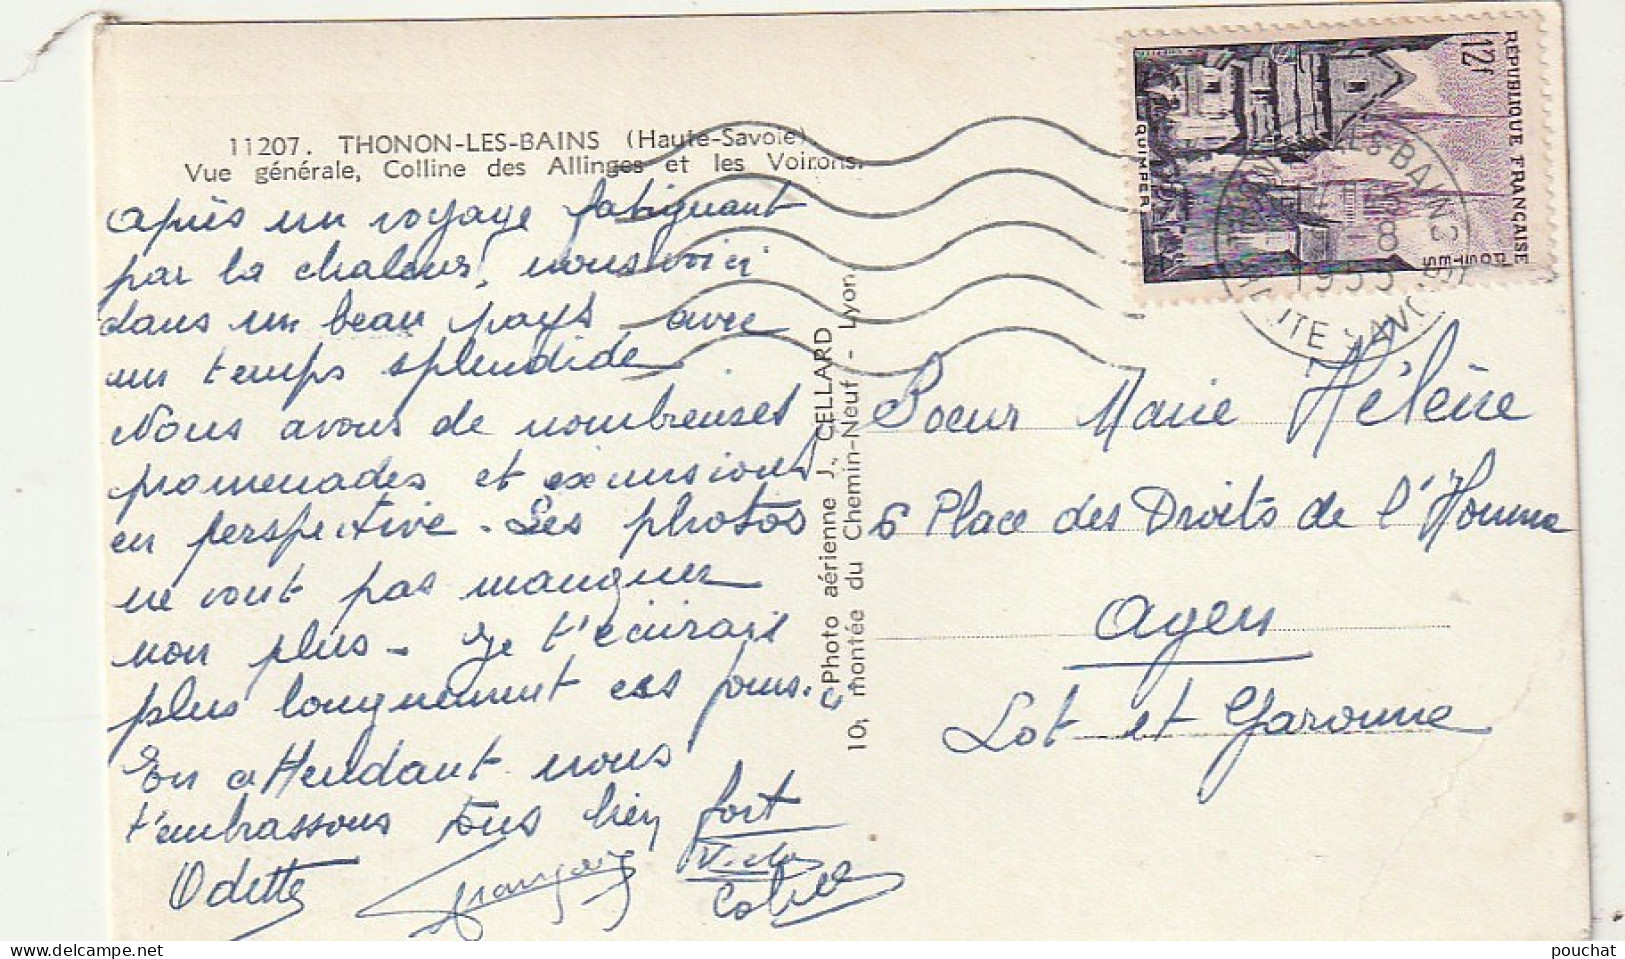 11207. THONON-LES-BAINS (Haute-Savoie)
Vue générale, Colline des Allinges et les Voirons.
après un voyage fatiguant
par la chaleur, nous voici
dans un beau pays avec
un temps splendide
Nous avons de nombreuses
promenades et excursions
en perspective. Les photos
ne vont pas manquer
non plus - Je t'écrirais
plus longuement ces jours.ci
En attendant nous
t'embrassons tous bien fort
Odette François
Photo aérienne J. CELLARD
10, montée du Chemin-Neuf - Lyon.
REPUBLIQUE FRANÇAISE
POSTES
12f
QUIMPER
LES-BAINS
8
1955
HAUTE SAVOIE
Soeur Marie Hélène
6 Place des Droits de l'Homme
Agen
Lot et Garonne
pouchat